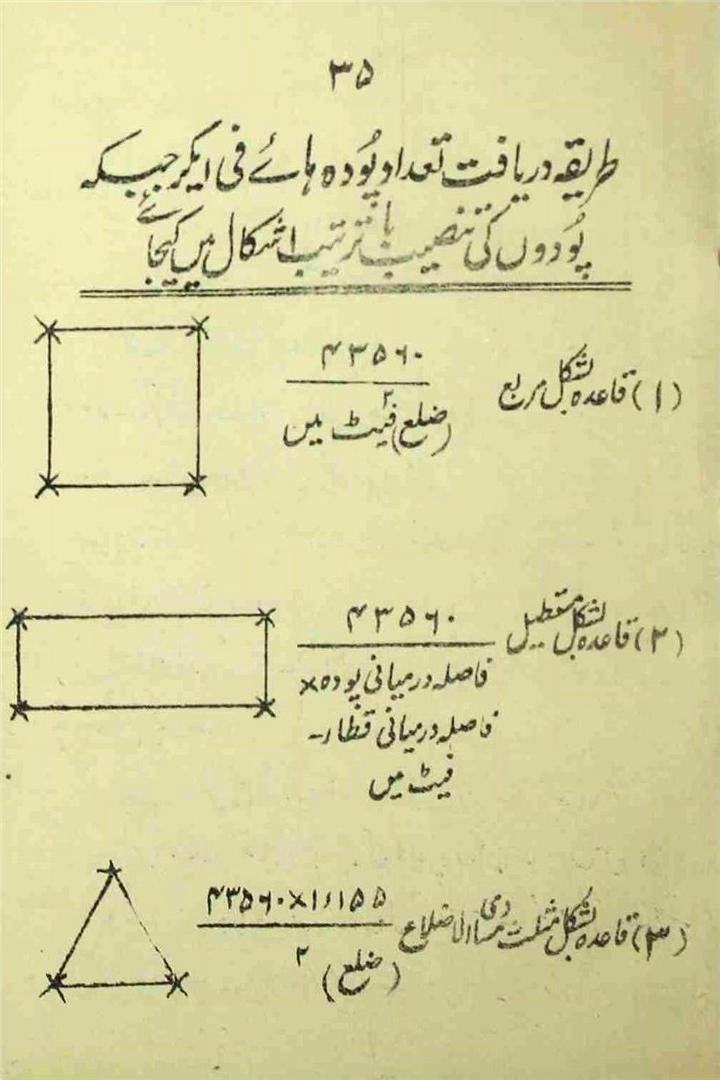 ۳۵
طریقہ دریافت تعداد پُودہ ہائے فی ایکڑ جبکہ
پُودوں کی تنصیب با ترتیب اشکال میں کیجائے
(۱) قاعدہ بشکل مربع
۴۳۵۶۰
(ضلع)۲ فیٹ میں
(۲) قاعدہ بشکل مستطیل
۴۳۵۶۰
فاصلہ درمیانی پودہ ×
فاصلہ درمیانی قطار۔
فیٹ میں
(۳) قاعدہ بشکل مثلث مساوی الاضلاع
۴۳۵۶۰×۱٫۱۵۵
(ضلع)۲